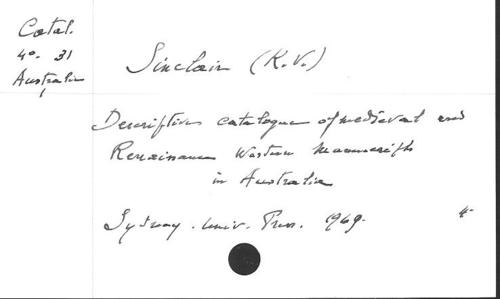 Catal.
4° 31
Australia
Sinclair (K.V.)
Descriptive catalogue of medieval and
Renaissance Western Manuscripts
in Australia
Sydney. Univ. Press. 1969.